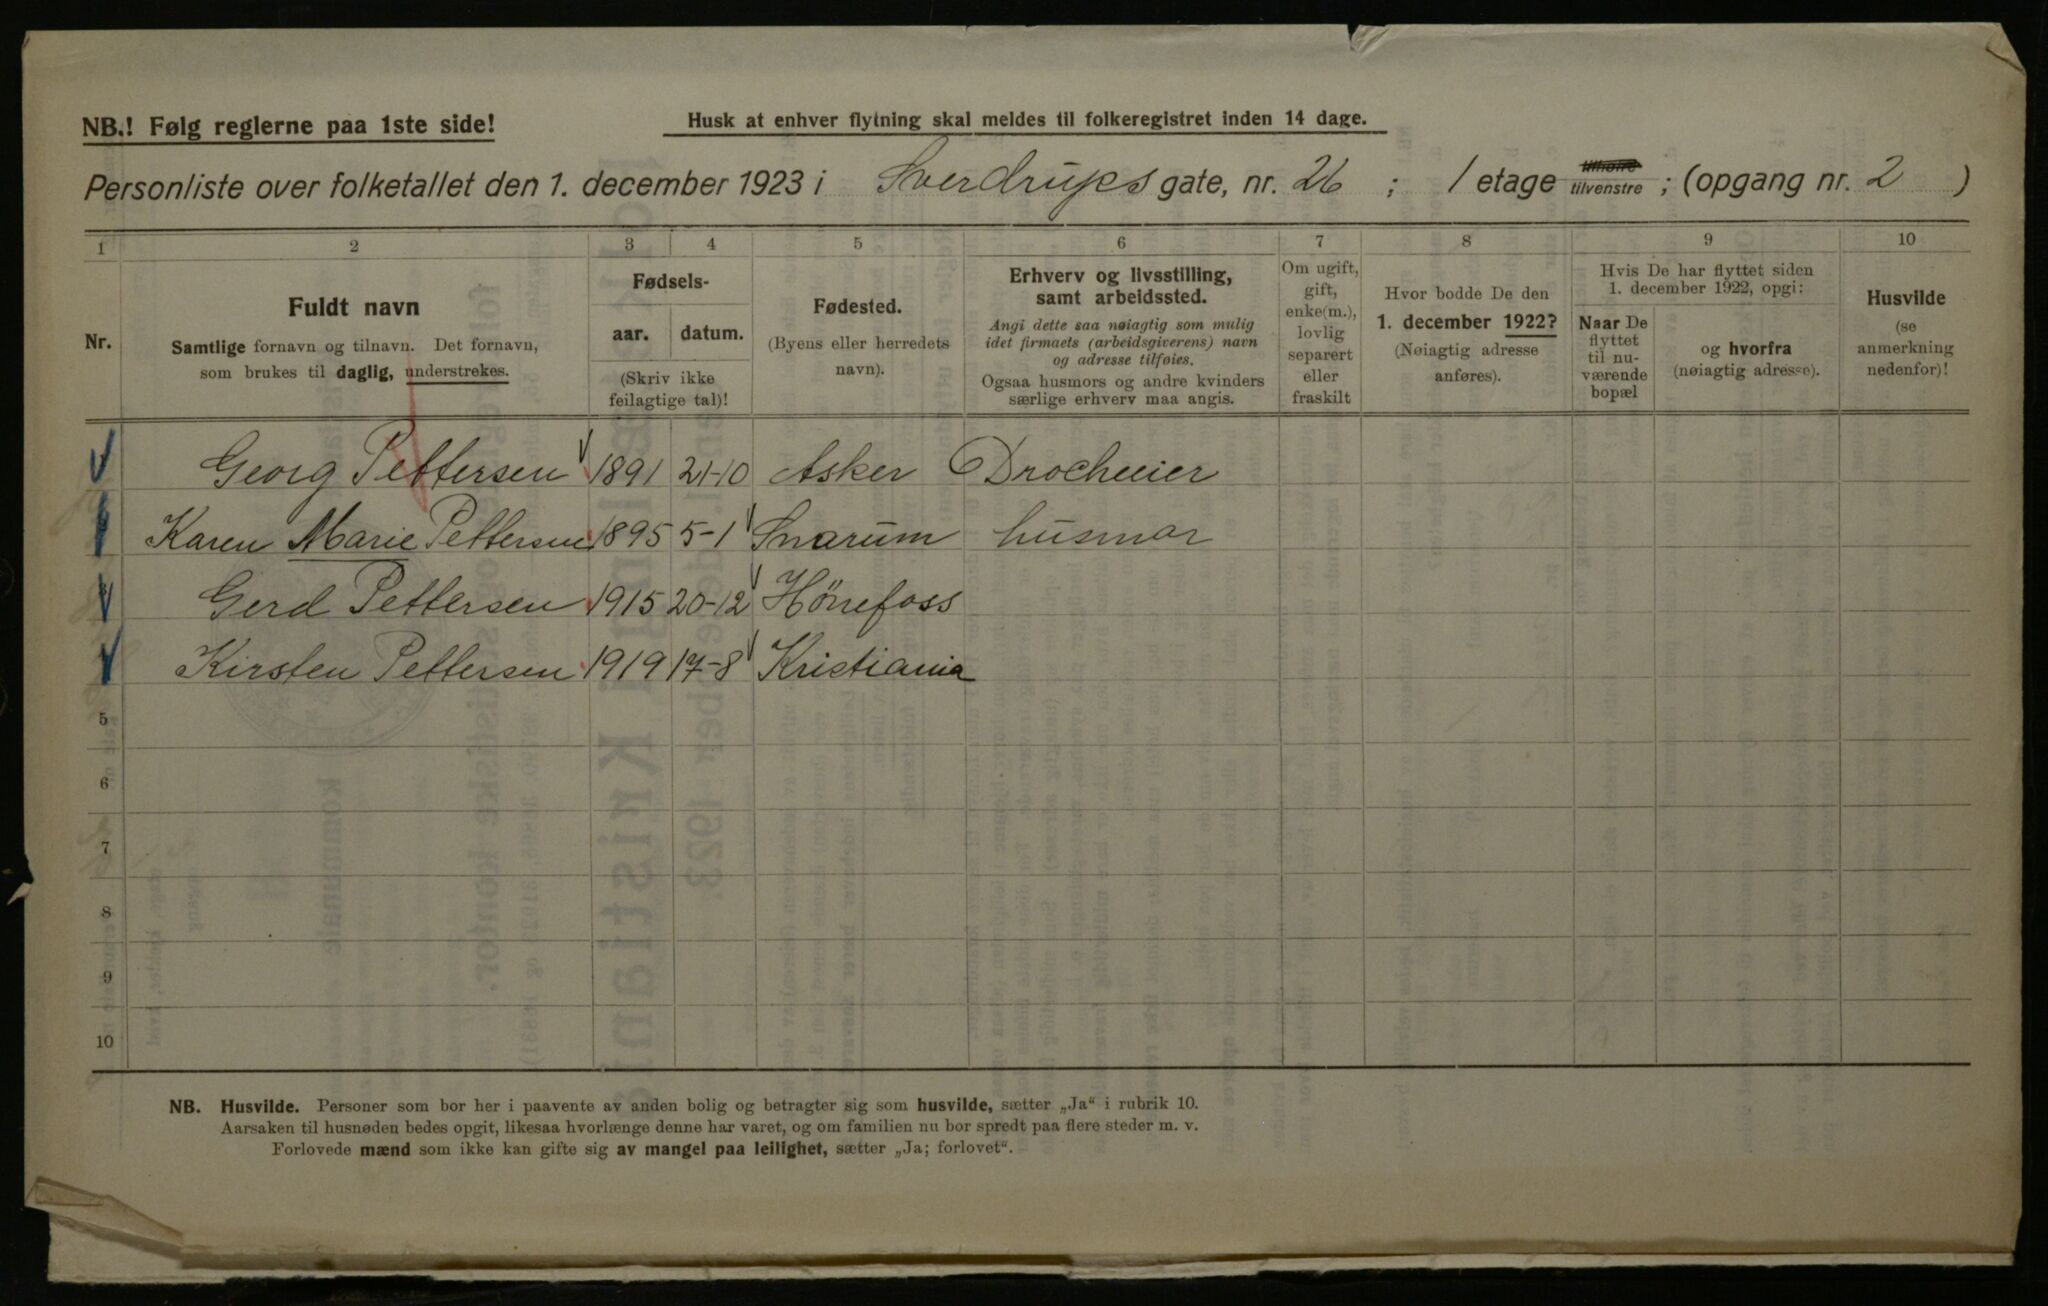 NB.! Følg reglerne paa 1ste side!
Husk at enhver flytning skal meldes til folkeregistret inden 14 dage.
Personliste over folketallet den 1. december 1923 i Sverdrups gate, nr. 26 ; 1 etage tilhøire tilvenstre ; (opgang nr. 2 )
1 2 3 4 5 6 7 8 9 10
Nr.
Fuldt navn
Samtlige fornavn og tilnavn. Det fornavn,
som brukes til daglig, understrekes.
Fødsels-
aar. datum.
(Skriv ikke
feilagtige tal)!
Fødested.
(Byens eller herredets
navn).
Erhverv og livsstilling,
samt arbeidssted.
Angi dette saa nøiagtig som mulig
idet firmaets (arbeidsgiverens) navn
og adresse tilføies.
Ogsaa husmors og andre kvinders
særlige erhverv maa angis.
Om ugift,
gift,
enke(m.),
lovlig
separert
eller
fraskilt
Hvor bodde De den
1. december 1922?
(Nøiagtig adresse
anføres).
Hvis De har flyttet siden
1. december 1922, opgi:
Naar De
flyttet
til nu-
værende
bopæl
og hvorfra
(nøiagtig adresse).
Husvilde
(se
anmerkning
nedenfor)!
Georg Pettersen 1891 21-10 Asker Drocheier
Karen Marie Pettersen 1895 5-1 Snarum husmor
Gerd Pettersen 1915 20-12 Hönefoss
Kirsten Pettersen 1919 17-8 Kristiania
5
6
7
8
9
10
NB. Husvilde. Personer som bor her i paavente av anden bolig og betragter sig som husvilde, sætter „Ja“ i rubrik 10.
Aarsaken til husnøden bedes opgit, likesaa hvorlænge denne har varet, og om familien nu bor spredt paa flere steder m. v.
Forlovede mænd som ikke kan gifte sig av mangel paa leilighet, sætter „Ja; forlovet“.